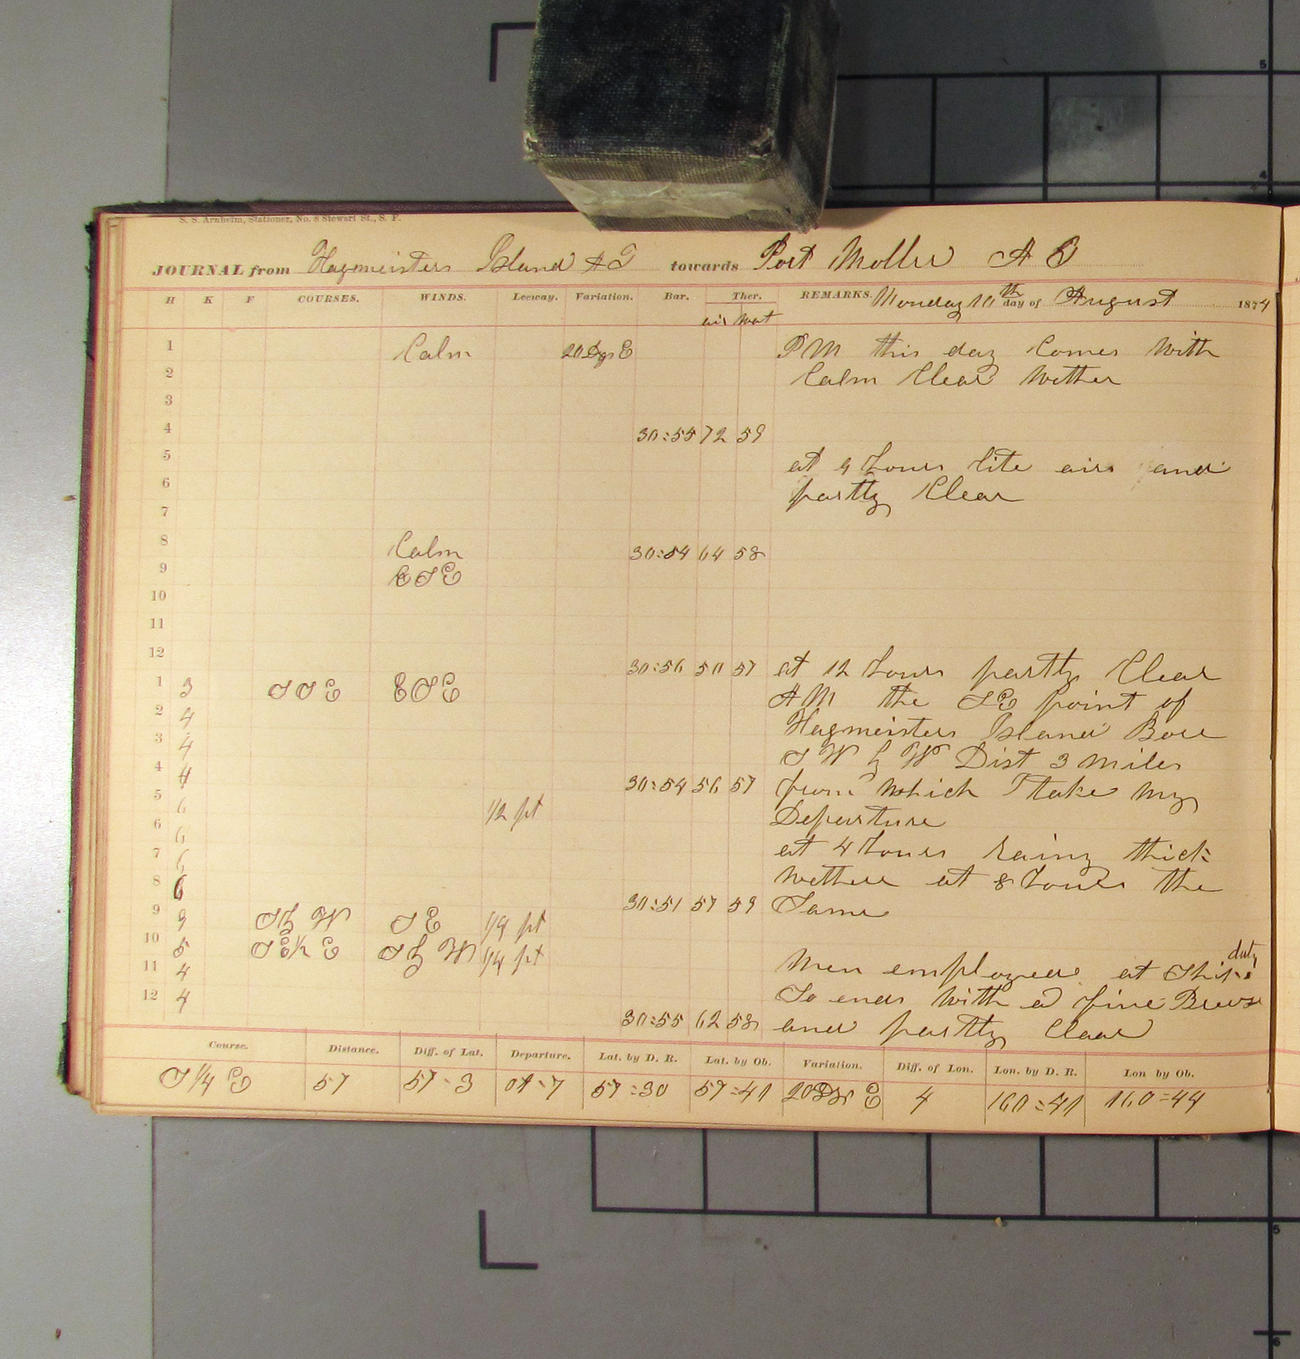 S. S. Arnheim, Stationer, No. 8 Stewart St., S. F.
JOURNAL from Hagmeisters Island A T towards Port Moller A
H K F COURSES. WINDS. Leeway. Variation. Bar. Ther. REMARKS. Monday 10th day of August 1874
air wat
1 Calm 20 Dgs E PM this day Comes With
2 Calm Clear Wether
3
4 30=55 72 59
5 at 4 hours lite airs and
6 partly Clear
7
8 Calm 30=54 64 58
9 ESE
10
11
12 30=56 50 57 at 12 hours partly Clear
1 3 SSE ESE AM the SE point of
2 4 Hagmeisters Island Bore
3 4 SW by W Dist 3 miles
4 4 30=54 56 57 from Which I take my
5 6 1/2 pt Departure
6 6 at 4 hours rainy thick
7 6 Wether at 8 hours the
8 6 30=51 57 59 Same
9 9 S by W S E 1/4 pt
10 5 SE 1/2 E S by W 1/4 pt
11 4 Men employed at Ships duty
12 4 So ends With a fine Breese
30=55 62 58 and partly Claar
Course. Distance. Diff. of Lat. Departure. Lat. by D. R. Lat. by Ob. Variation. Diff. of Lon. Lon. by D. R. Lon by Ob.
S 1/4 E 57 57=3 01=7 57=30 57=41 20 Dgs E 4 160=41 160=44
5
4
5
6